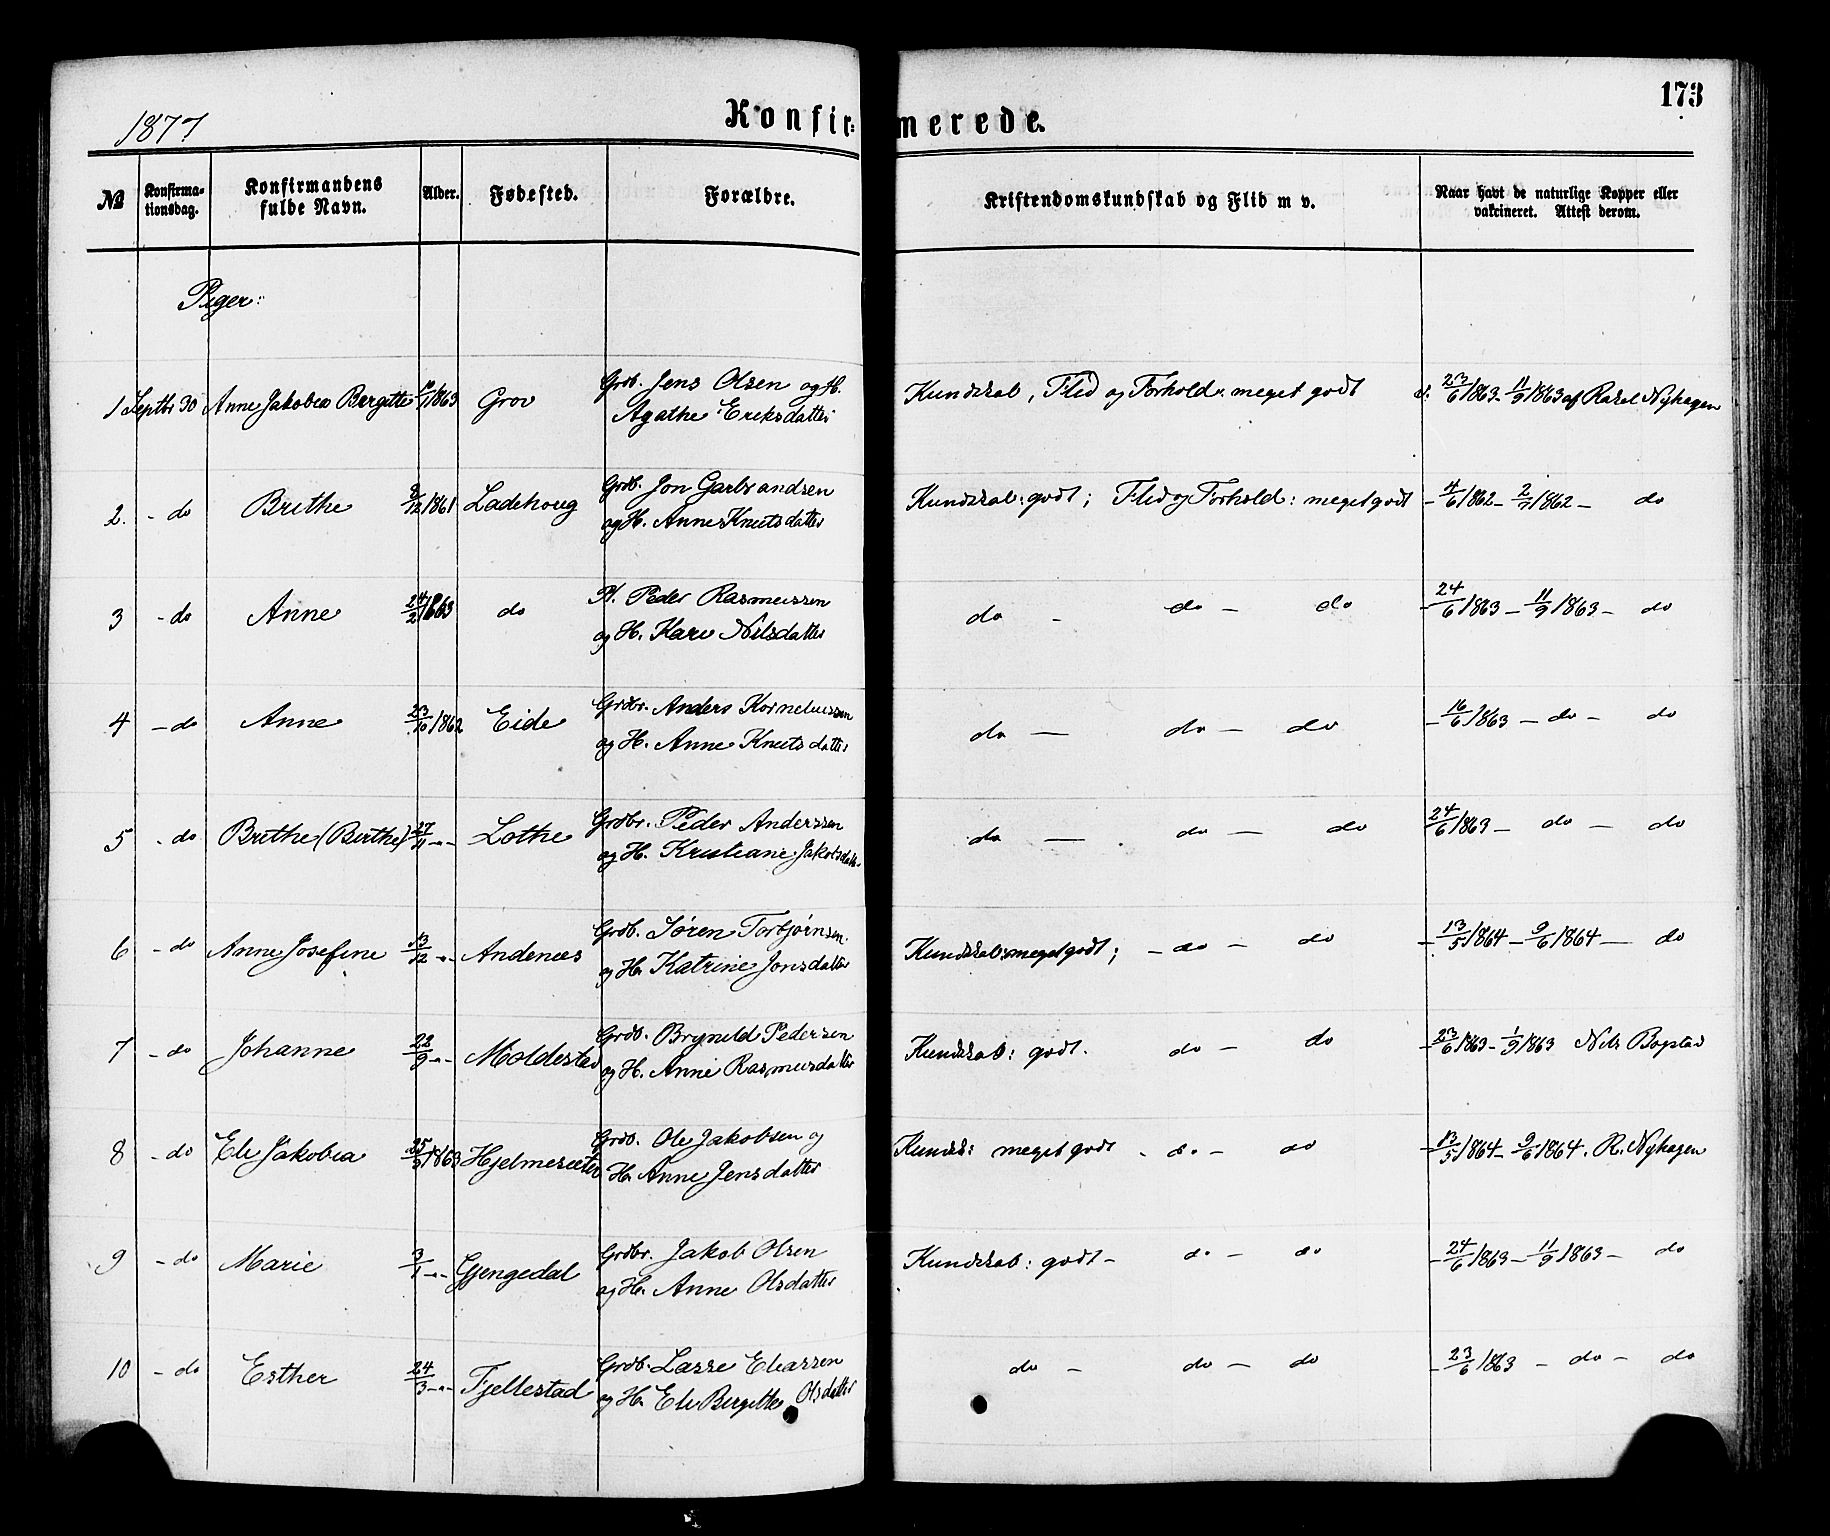 173
1877 Konfir= merede.
№ Konfirma-tionsdag. Konfirmandens fulde Navn. Alder. Fødested. Forældre. Kristendomskundskab og Flid m v. Naar havt de naturlige Kopper eller vakcineret. Attest derom.
Piger:
1 Septbr 30 Anne Jakobea Bergitte 1863 Grov Grdb. Jens Olsen og H. Agathe Eriksdatter Kundskab, Flid og Forhold: meget godt 23/6 1863 - 11/9 1863 af Rasel Nyhagen
2. - do Brithe 8/12 1861 Ladehoug Grdb. Jon Garbrandsen og H. Anne Knutsdatter Kundskab: godt; Flid og Forhold: meget godt - 4/6 1862 - 2/7 1862 - do
3 - do Anne 24/2 1863 do Pl. Peder Rasmussen og H. Kari Nilsdatter do - do - do - 24/6 1863 - 11/9 1863 - do
4 - do Anne 23/10 1862 Eide Grdbr. Anders Korneliussen og H. Anne Knutsdatter do - do - do - 16/6 1863 - do - do
5 - do Brithe (Birthe) 27/11 -"- Lothe Grdbr. Peder Anderssen og H. Kristiane Jakobsdatter do - do - do 24/6 1863 - do - do
6 - do Anne Josefine 13/12 -"- Andenæs Grdb. Søren Torbjørnsen og H. Katrine Jonsdatter Kundskab: meget godt; - do - do - 13/5 1864 - 9/6 1864 - do
7 - do Johanne 22/9 -"- Moldestad Grdb. Brynild Pedersen og H. Anne Rasmusdatter Kundskab: godt. do - do - 23/6 1863 - 1/9 1863 Nils Bopstad
8 - do Eli Jakobea 25/5 1863 Hjelmesæter Grdb. Ole Jakobsen og H. Anne Jensdatter Kundsk: meget godt - do - do - 13/5 1864 - 9/6 1864. R. Nyhagen
9 - do Marie 3/1 -"- Gjengedal Grdbr. Jakob Olsen og H. Anne Olsdatter Kundskab: godt - do - do - 24/6 1863 - 11/9 1863 - do
10 - do Esther 24/3 -"- Fjellestad Grdb. Lasse Eliassen og H. Eli Bergitte Olsdatter do - do - do - 23/6 1863 - do - do